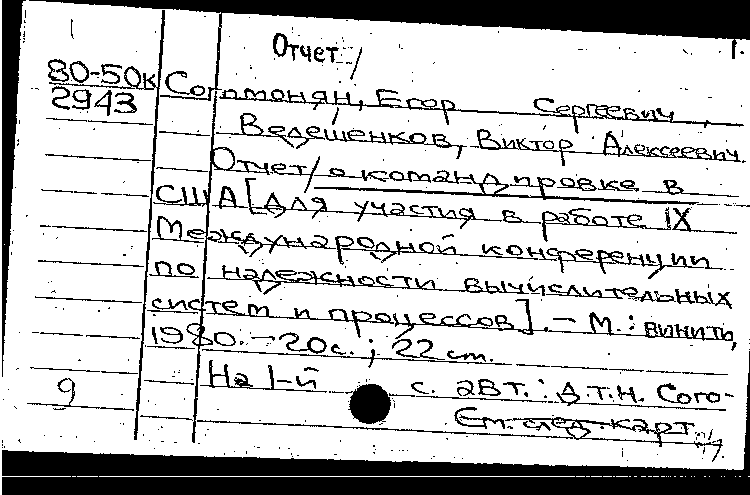 Отчет/
1.
80-50к Согомонян, Егор Сергеевич,
2943
Ведешенков, Виктор Алексеевич
Отчет/о командировке в
США [для участия в работе IX
Международной конференции
по надежности вычислительных
систем и процессов]. - М.: ВИНИТИ,
1980. - 20с.; 22 см.
На 1-й с. авт.: д.т.н. Сого-
9
См. след. карт.